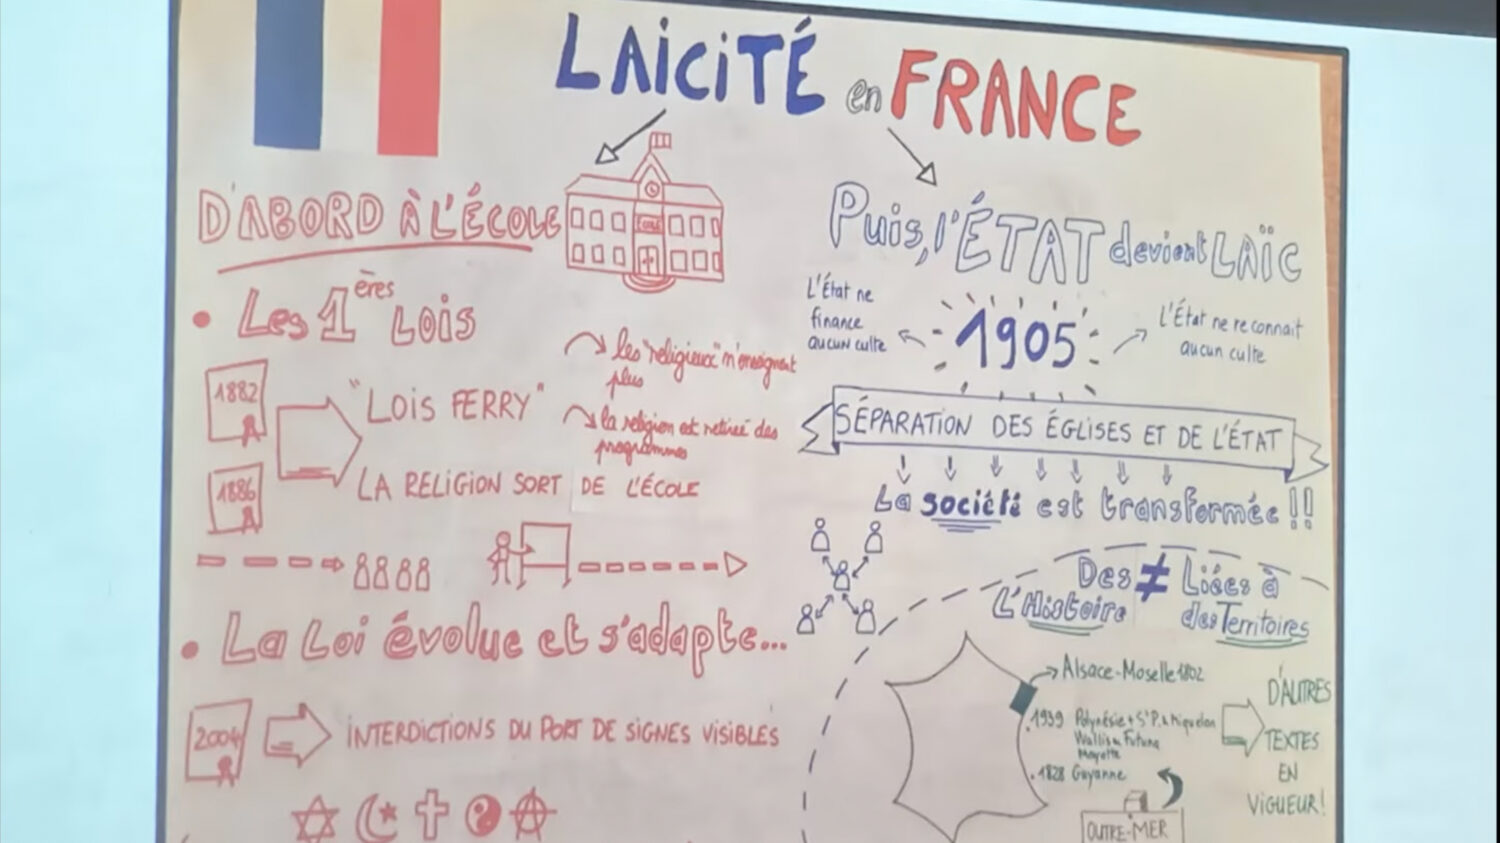 LAÏCITÉ en FRANCE
D'ABORD À L'ÉCOLE
ÉCOLE
• Les 1ères LOIS
1882
1886
"LOIS FERRY"
les "religieux" n'enseignent
plus
la religion est retirée des
programmes
LA RELIGION SORT DE L'ÉCOLE
• La Loi évolue et s'adapte...
2004
INTERDICTIONS DU PORT DE SIGNES VISIBLES
Puis, l'ÉTAT devient LAÏC
L'État ne
finance
aucun culte
1905
L'État ne reconnait
aucun culte
SÉPARATION DES ÉGLISES ET DE L'ÉTAT
La société est transformée !!
Des ≠ Liées à
L'Histoire
des Territoires
Alsace-Moselle 1802
1939 Polynésie + St P. & Miquelon
Wallis & Futuna
Mayotte
1828 Guyanne
OUTRE-MER
D'AUTRES
TEXTES
EN
VIGUEUR!